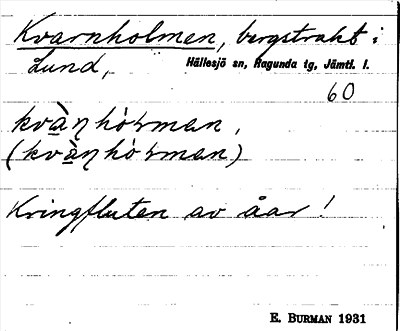 Kvarnholmen, bergstrakt i
Lund, Hällesjö sn, Ragunda tg, Jämtl. l.
60
kvàṇhò́rman,
(kvàṇhò́rman)
Kringfluten av åar!
E. BURMAN 1931